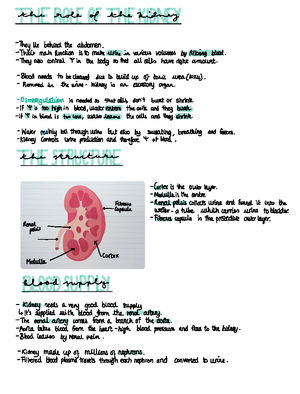 THE ROLE OF THE KIDNEY
the role of the kidney
- They lie behind the abdomen.
- Their main function is to make urine in various volumes by filtering blood.
- They also control Ψ in the body so that all cells have right amount.
- Blood needs to be cleaned due to build up of toxic urea (key).
- Removed in the urine - kidney is an excretory organ.
- Osmoregulation is needed so that cells don't burst or shrink.
- If Ψ is too high in blood, water enters the cells and they burst.
- If Ψ in blood is too low, water leaves the cells and they shrink.
- Water mainly lost through urine but also by sweating, breathing and faeces.
- Kidney controls urine production and therefore Ψ of blood.
THE STRUCTURE
the structure
Fibrous
capsule
Renal
pelvis
Medulla
Cortex
- Cortex is the outer layer.
- Medulla is the centre
- Renal pelvis collects urine and funnel it into the
ureter - a tube which carries urine to bladder.
- Fibrous capsule is the protective outer layer.
BLOOD SUPPLY
blood supply
- Kidney needs a very good blood supply
↳ It's supplied with blood from the renal artery.
- The renal artery comes from a branch of the aorta.
- Aorta takes blood from the heart - high blood pressure and flow to the kidney.
- Blood leaves by renal vein.
- Kidney made up of millions of nephrons.
- Filtered blood plasma travels through each nephron and converted to urine.